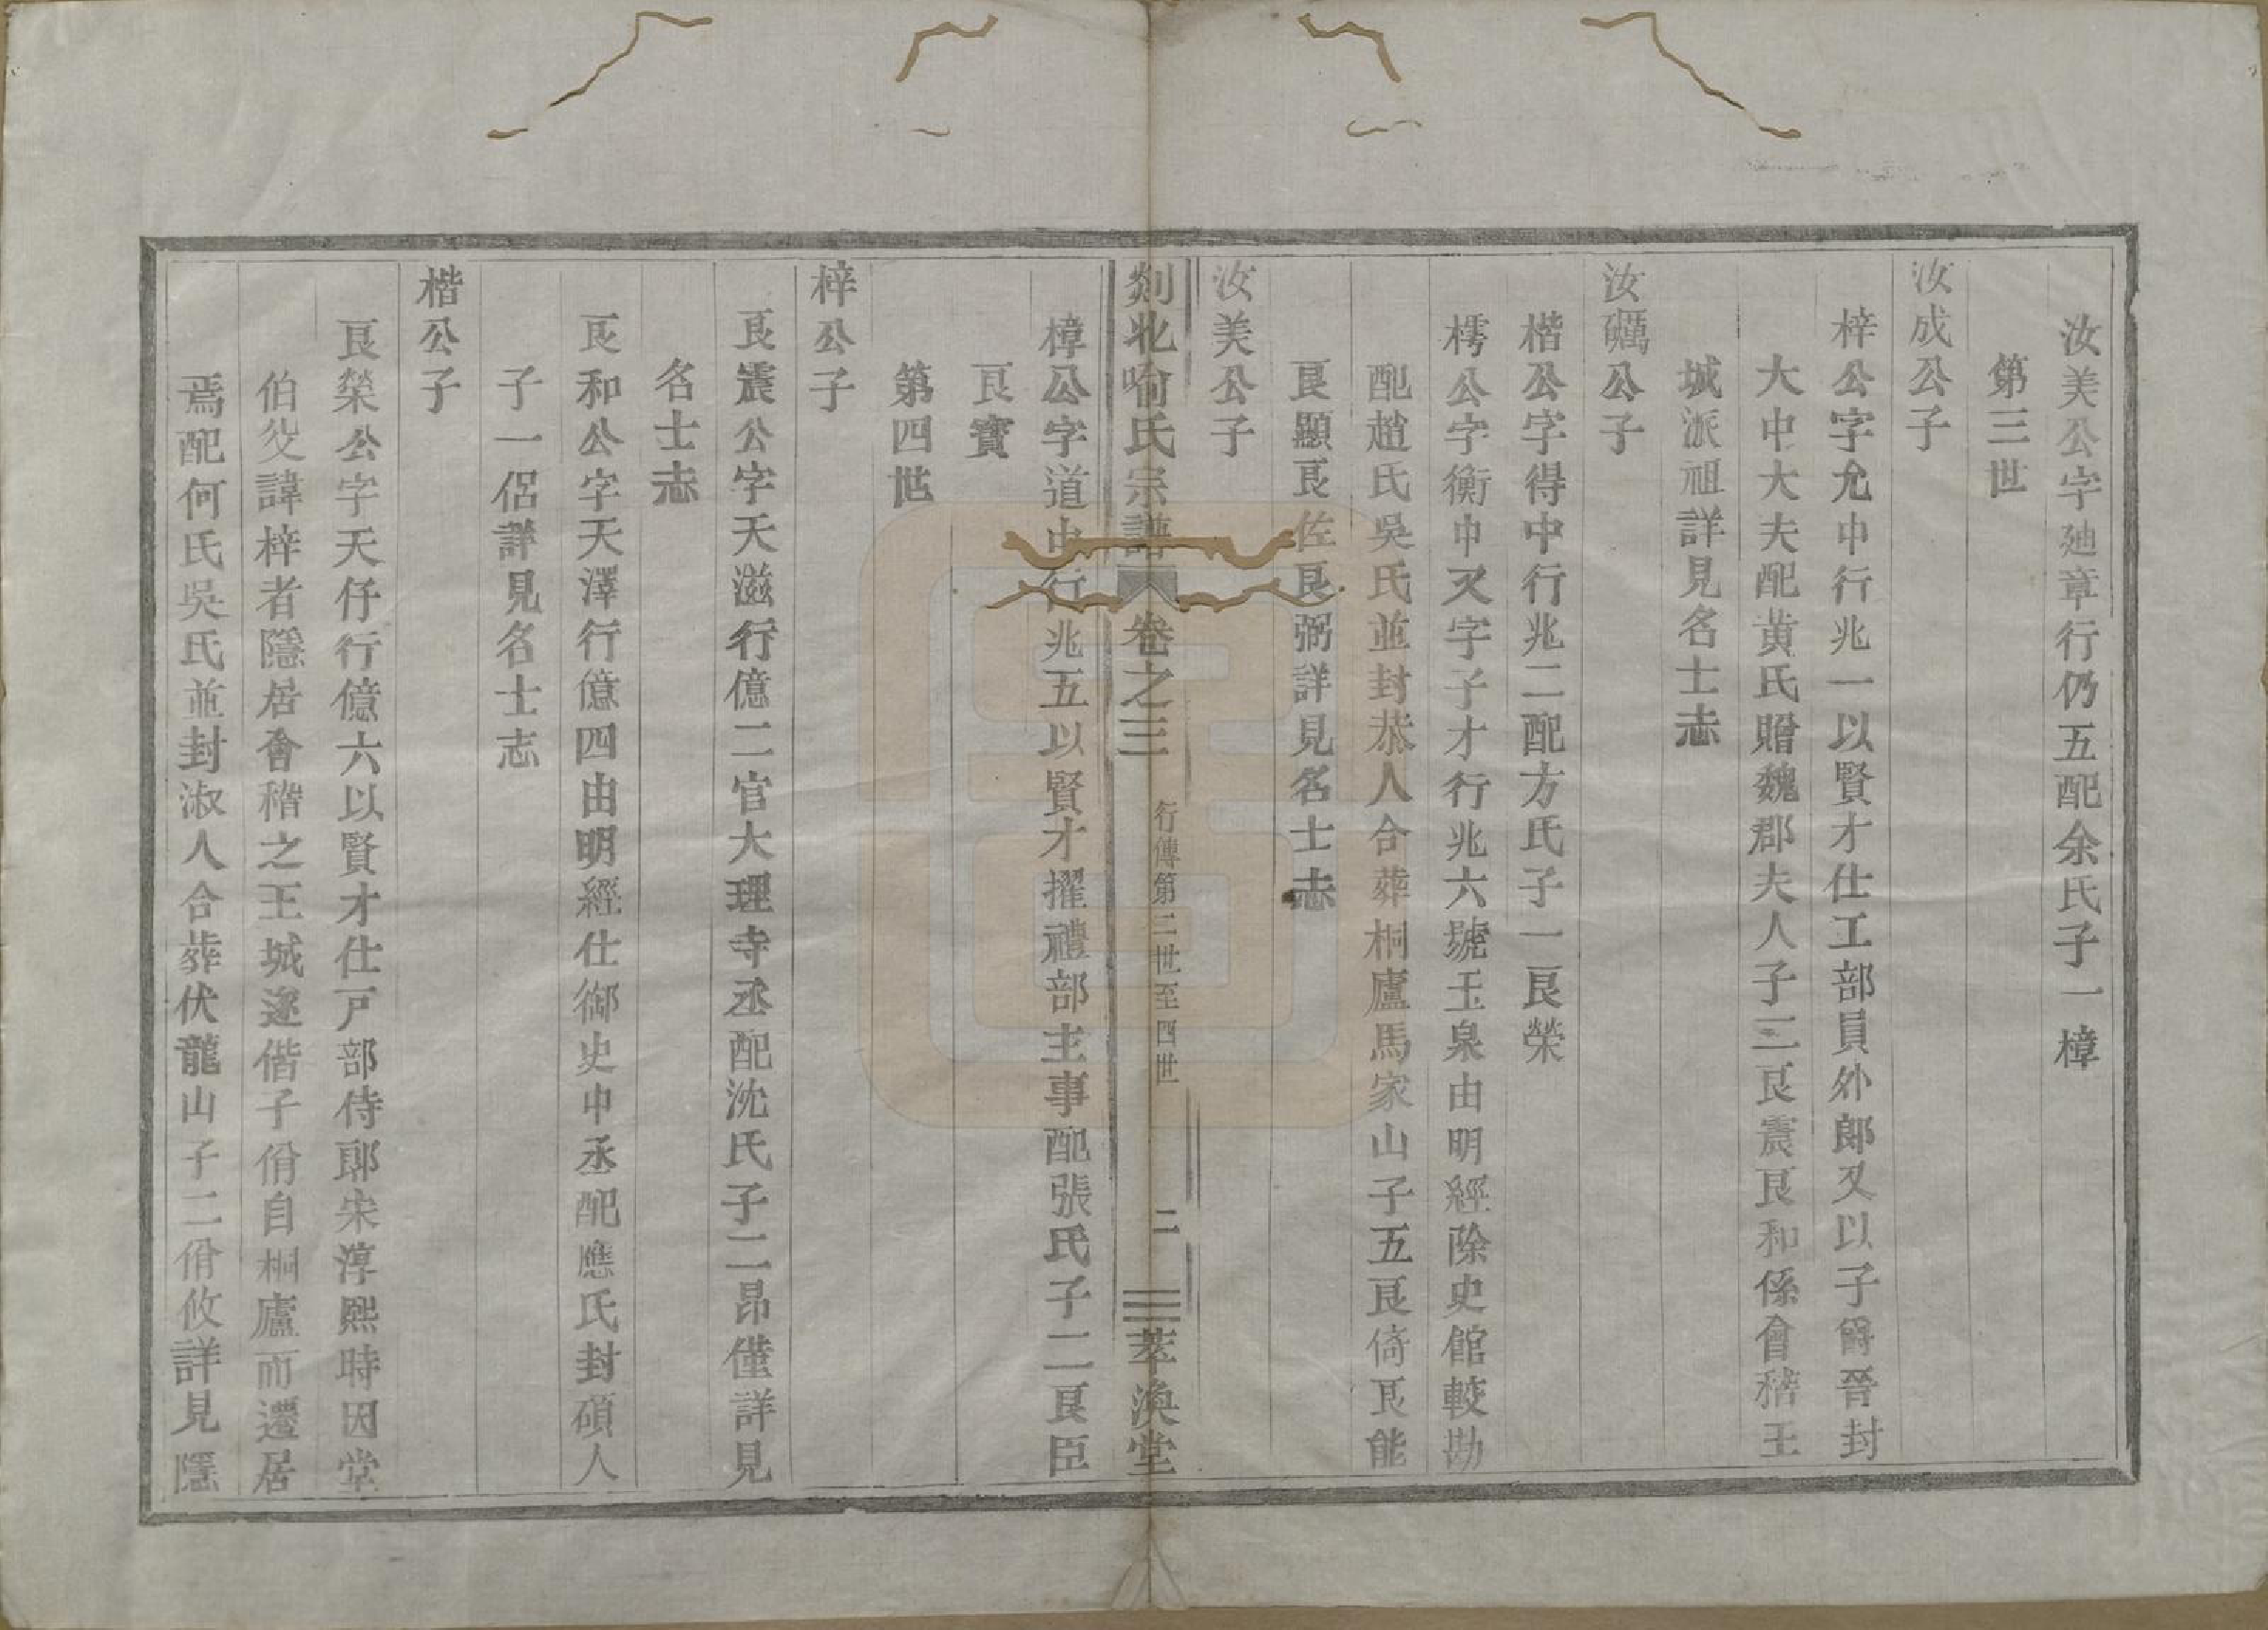 汝美公字廸章行仍五配余氏子一樟
第三世
汝成公子
梓公字允中行兆一以賢才仕工部員外郎又以子爵晉封
大中大夫配黃氏贈魏郡夫人子二艮震艮和係會稽王
城派祖詳見名士志
汝礪公子
楷公字得中行兆二配方氏子一艮榮
樗公字衡中又字子才行兆六號玉泉由明經除史館較勘
配趙氏吳氏並封恭人合葬桐廬馬家山子五艮倚艮能
艮顯艮佐艮弼詳見名士志
汝美公子
剡北喻氏宗譜 卷之三 行傳第二世至四世 二 萃渙堂
樟公字道中行兆五以賢才擢禮部主事配張氏子二艮臣
艮寶
第四世
梓公子
艮震公字天滋行億二官大理寺丞配沈氏子二昂僅詳見
名士志
艮和公字天澤行億四由明經仕御史中丞配應氏封碩人
子一侶詳見名士志
楷公子
艮榮公字天仔行億六以賢才仕戸部侍郎宋淳熙時因堂
伯父諱梓者隱居會稽之王城遂偕子佾自桐廬而遷居
焉配何氏吳氏並封淑人合葬伏龍山子二佾攸詳見隱